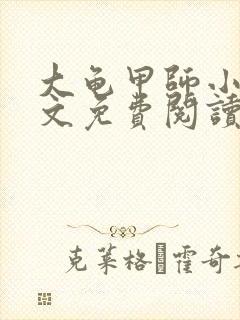 大龟甲師小
文免費閱讀
克莱格·霍奇